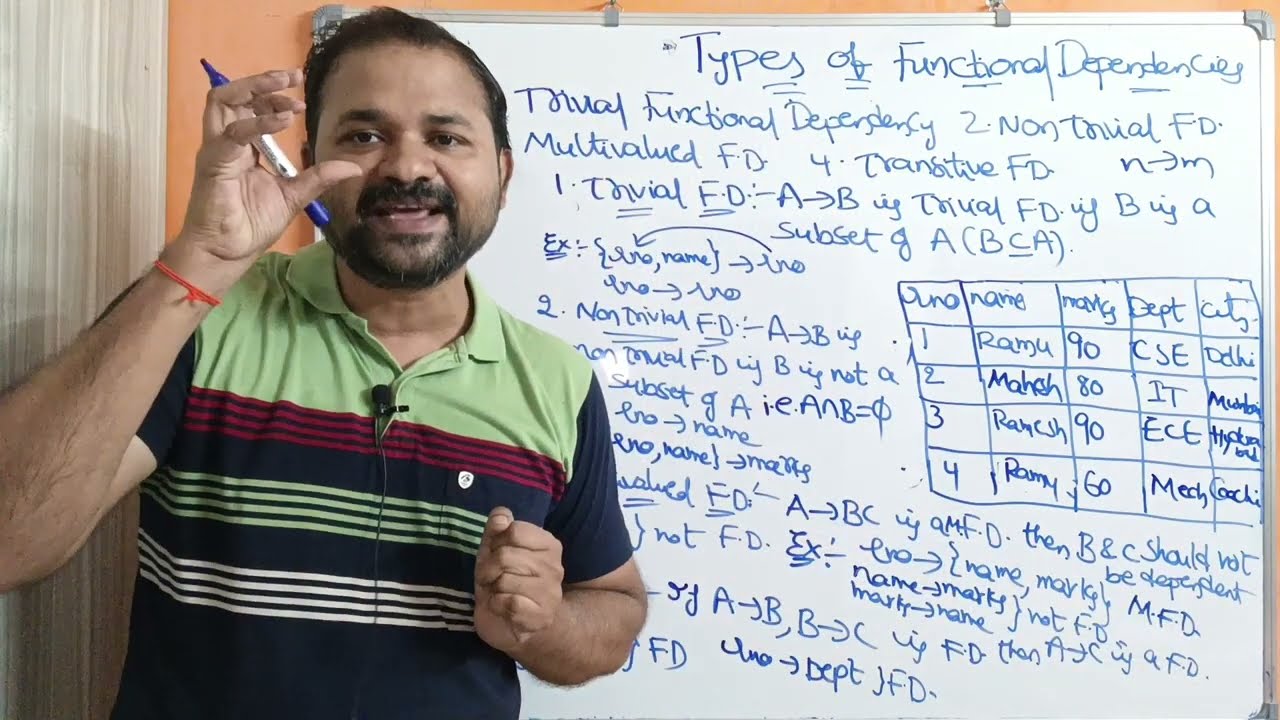 Types of Functional Dependencies
Trivial Functional Dependency 2. Non Trivial F.D.
Multivalued F.D. 4. Transitive F.D. n→m
1. Trivial F.D:- A→B is Trivial F.D. if B is a
subset of A (B⊆A).
Ex:- {rno, name} → rno
rno → rno
2. Non Trivial F.D:- A→B is
non Trivial F.D if B is not a
subset of A i.e. A∩B=ϕ
rno → name
rno, name} → marks
rno name marks Dept City
1 Ramu 90 CSE Delhi
2 Mahesh 80 IT Mumbai
3 Ramesh 90 ECE
4 Ramu 60 Mech Cochi
valued F.D:- A→BC is a M.F.D. then B & C should not
be dependent
} not F.D. Ex:- rno → {name, marks} M.F.D.
name→marks
marks→name } not F.D
If A→B, B→C is F.D then A→C is a F.D.
} FD rno → Dept } F.D.